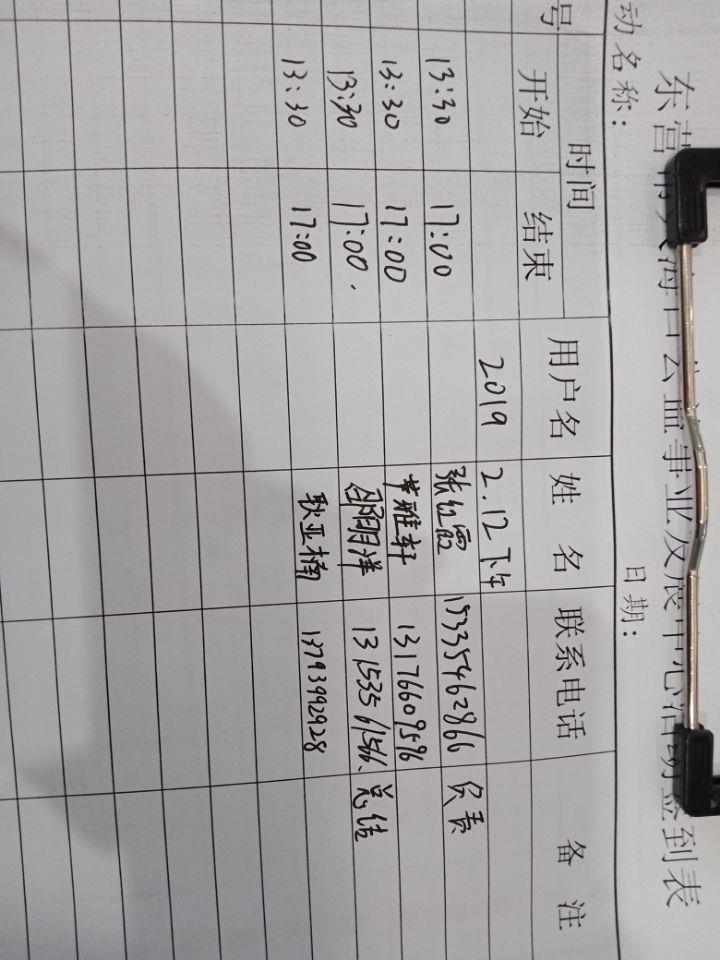 东营市大海口公益事业发展中心活动签到表
动名称： 日期：
号 时间 用户名 姓名 联系电话 备注
开始 结束
2019 2.12下午
13:30 17:00 张红霞 15335462866 负责
13:30 17:00 雅轩 13176609596
13:30 17:00. 邵明洋 13153561566. 总结
13:30 17:00 耿亚楠 13793992928